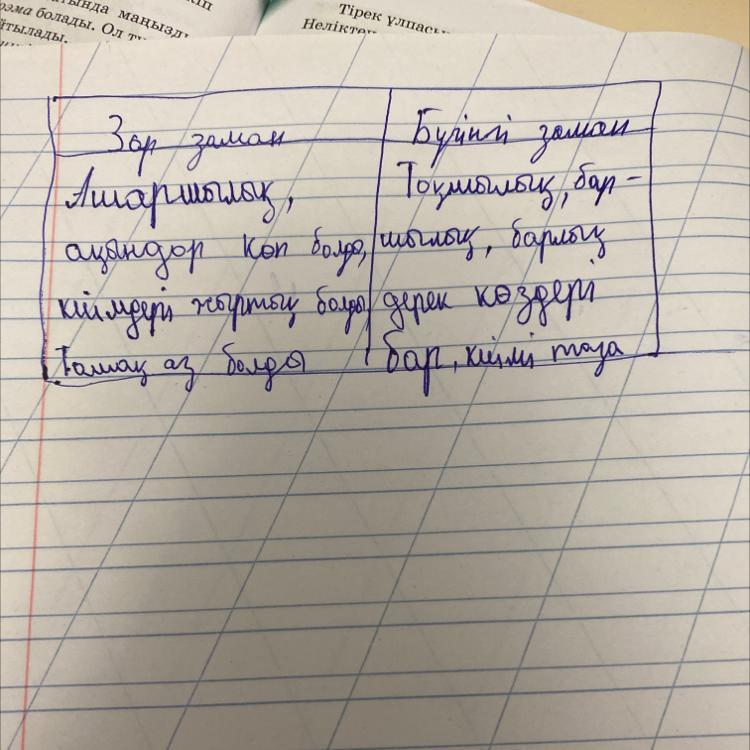 атында маңызды
озма болады. Ол
йтылады.
Тірек ұлпасы
Неліктен
Зар заман
Бүгінгі заман
Ашаршылық,
Тоқшылық, бар-
ақындар көп болды,
шылық, барлық
киімдері жыртық болды
дерек көздері
Тамақ аз болды
бар, киімі таза